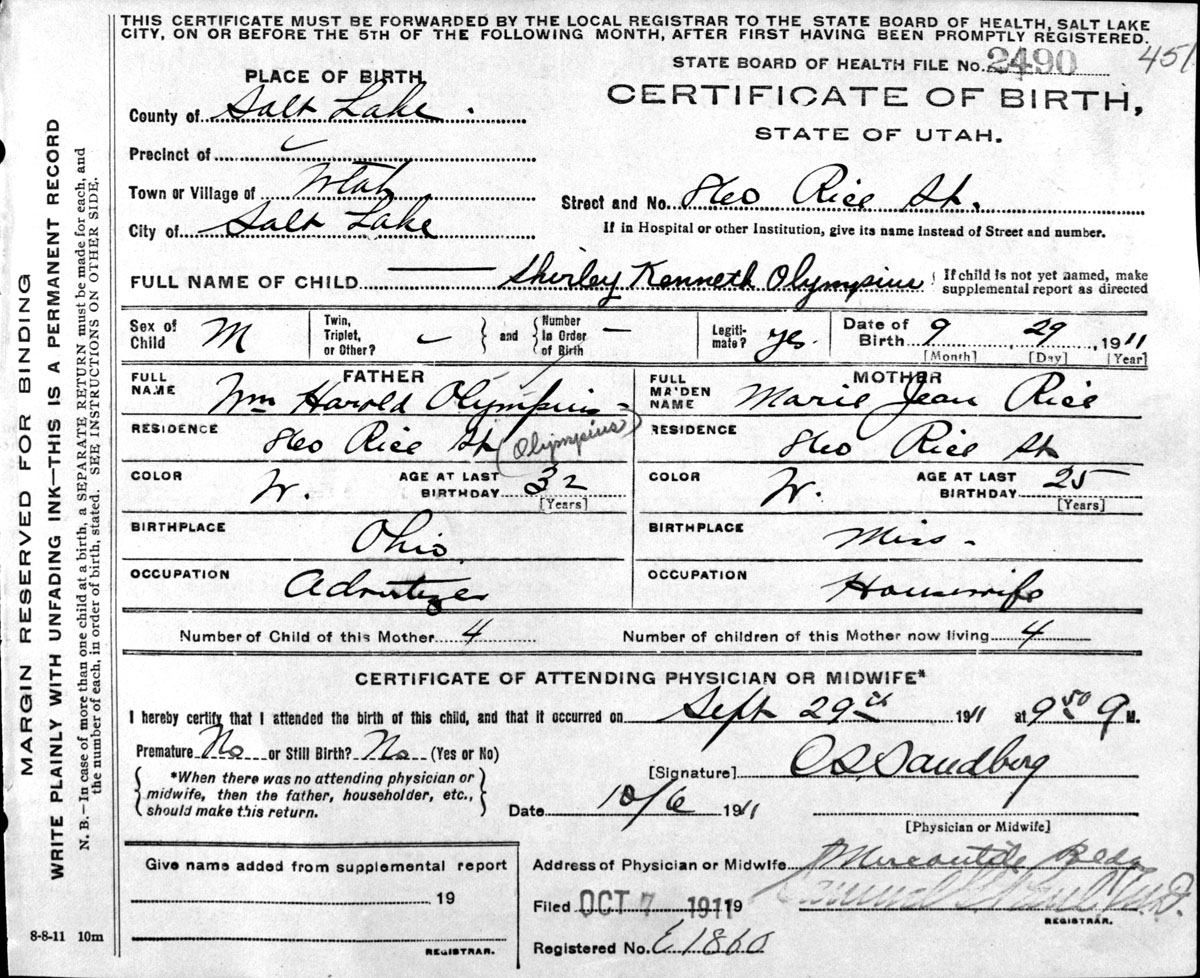 THIS CERTIFICATE MUST BE FORWARDED BY THE LOCAL REGISTRAR TO THE STATE BOARD OF HEALTH, SALT LAKE
CITY, ON OR BEFORE THE 5TH OF THE FOLLOWING MONTH, AFTER FIRST HAVING BEEN PROMPTLY REGISTERED.
STATE BOARD OF HEALTH FILE No. 2490 451
PLACE OF BIRTH
CERTIFICATE OF BIRTH,
STATE OF UTAH.
County of Salt Lake.
Precinct of
Town or Village of Utah
Street and No. Rice St.
City of Salt Lake
If in Hospital or other Institution, give its name instead of Street and number.
FULL NAME OF CHILD Shirley Kenneth Olympius { If child is not yet named, make
supplemental report as directed
Sex of Child M Twin, Triplet, or Other? - and Number in Order of Birth - Legitimate? yes. Date of Birth 9 29, 1911
[Month] [Day] [Year]
FATHER MOTHER
FULL NAME Wm Harold Olympius FULL MAIDEN NAME Marie Jean Rice
RESIDENCE Rice St (Olympius) RESIDENCE Rice St
COLOR W. AGE AT LAST BIRTHDAY 32 [Years] COLOR W. AGE AT LAST BIRTHDAY 25 [Years]
BIRTHPLACE Ohio BIRTHPLACE Miss-
OCCUPATION Advertizer OCCUPATION Housewife
Number of Child of this Mother 4 Number of children of this Mother now living 4
CERTIFICATE OF ATTENDING PHYSICIAN OR MIDWIFE*
I hereby certify that I attended the birth of this child, and that it occurred on Sept 29th 1911 at 9 50 M.
Premature No or Still Birth? No (Yes or No)
*When there was no attending physician or
midwife, then the father, householder, etc.,
should make this return.
[Signature] C.S. Sandberg
Date 10/6 1911
[Physician or Midwife]
Give name added from supplemental report
19
REGISTRAR.
Address of Physician or Midwife Mercantile Bldg
Filed OCT 7 1911 19
REGISTRAR.
Registered No. E1860
8-8-11 10m
MARGIN RESERVED FOR BINDING
WRITE PLAINLY WITH UNFADING INK—THIS IS A PERMANENT RECORD
N. B.—In case of more than one child at a birth, a SEPARATE RETURN must be made for each, and
the number of each, in order of birth, stated. SEE INSTRUCTIONS ON OTHER SIDE.